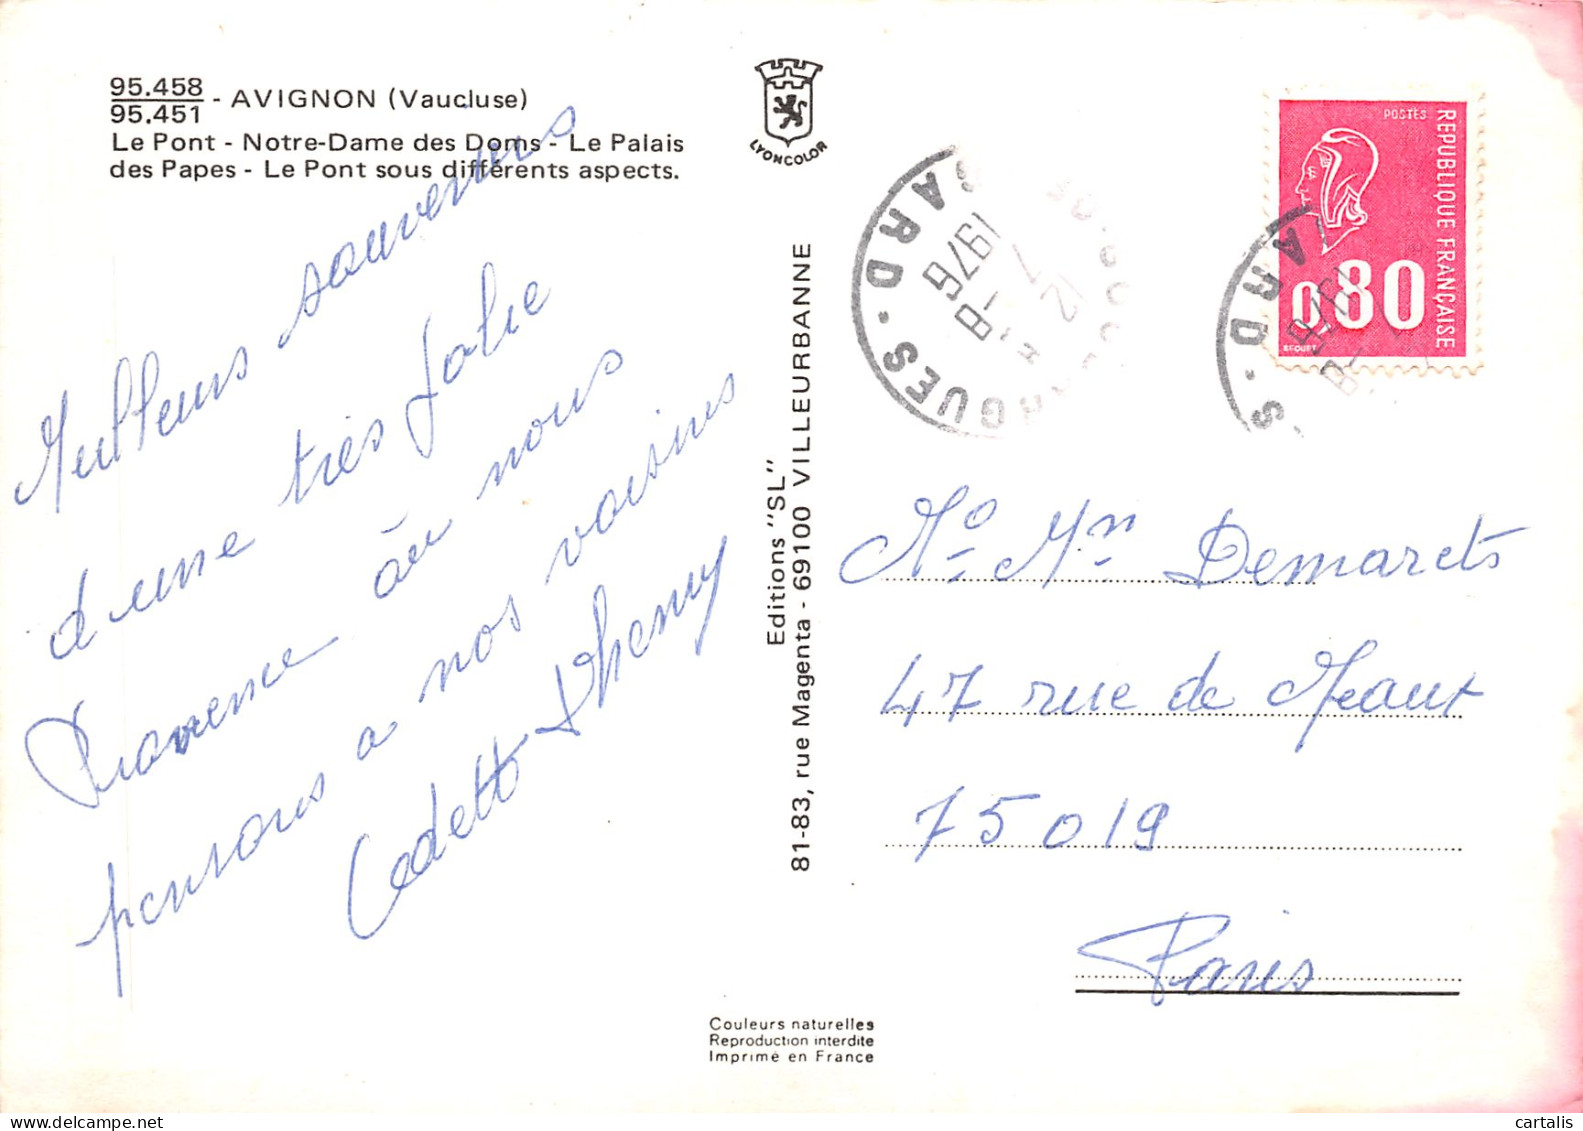 95.458
95.451 - AVIGNON (Vaucluse)
Le Pont - Notre-Dame des Doms - Le Palais
des Papes - Le Pont sous différents aspects.
LYONCOLOR
Meilleurs souvenirs
d'une très jolie
Provence où nous
pensons a nos voisins
Editions "SL"
81-83, rue Magenta - 69100 VILLEURBANNE
GARD
1976
POSTES
REPUBLIQUE FRANÇAISE
0,80
BEQUET
Me Mr Demarets
47 rue de Meaux
75019
Paris
Couleurs naturelles
Reproduction interdite
Imprimé en France
cartalis